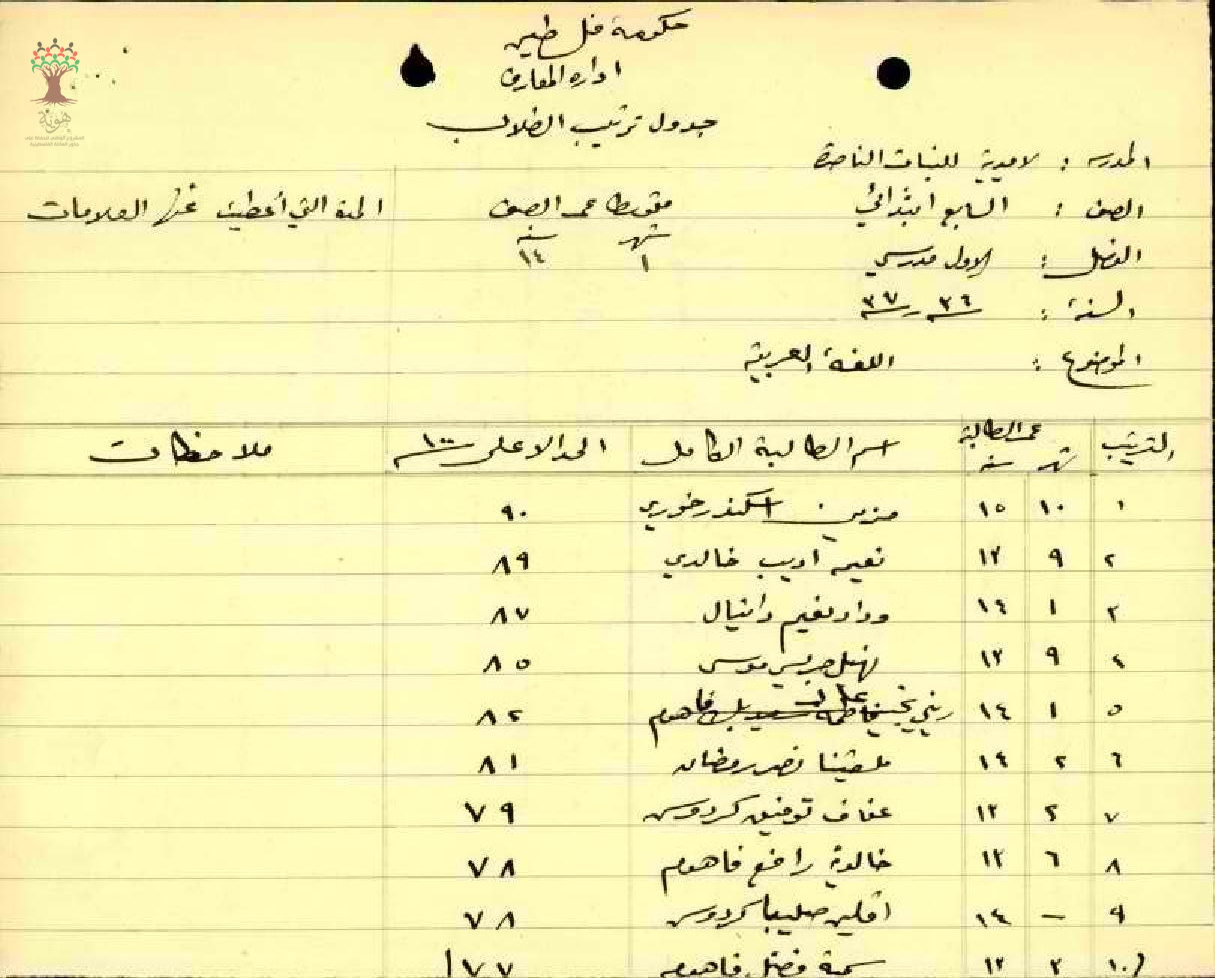 حكومة فلسطين
ادارة المعارف
جدول ترتيب الطلاب
المدرسة : الاميرية للبنات الناصرة
الصف : السابع ابتدائي متوسط عمر الصف المدة التي أعطيت عنها العلامات
شهر سنة
الفصل : الاول مدرسي ١ ١٤
السنة : ٣٦ - ٣٧
الموضوع : اللغة العربية
الترتيب عمر الطالبة اسم الطالبة الكامل الحد الاعلى ١٠٠ ملاحظات
شهر سنة
١ ١٠ ١٥ اسكندر خوري ٩٠
٢ ٩ ١٣ نعيمه اديب خالدي ٨٩
٣ ١ ١٤ وداد نعيم دانيال ٨٧
٤ ٩ ١٣ موسى ٨٥
٥ ١ ١٤ فاهوم ٨٢
٦ ٢ ١٤ نصر رمضان ٨١
٧ ٢ ١٣ عفاف توفيق كردوس ٧٩
٨ ٦ ١٣ خالدية رافع فاهوم ٧٨
٩ – ١٤ صليبا كردوس ٧٨
١٠ ٣ ١٣ سمية فضل فاهوم ٧٧
هوية